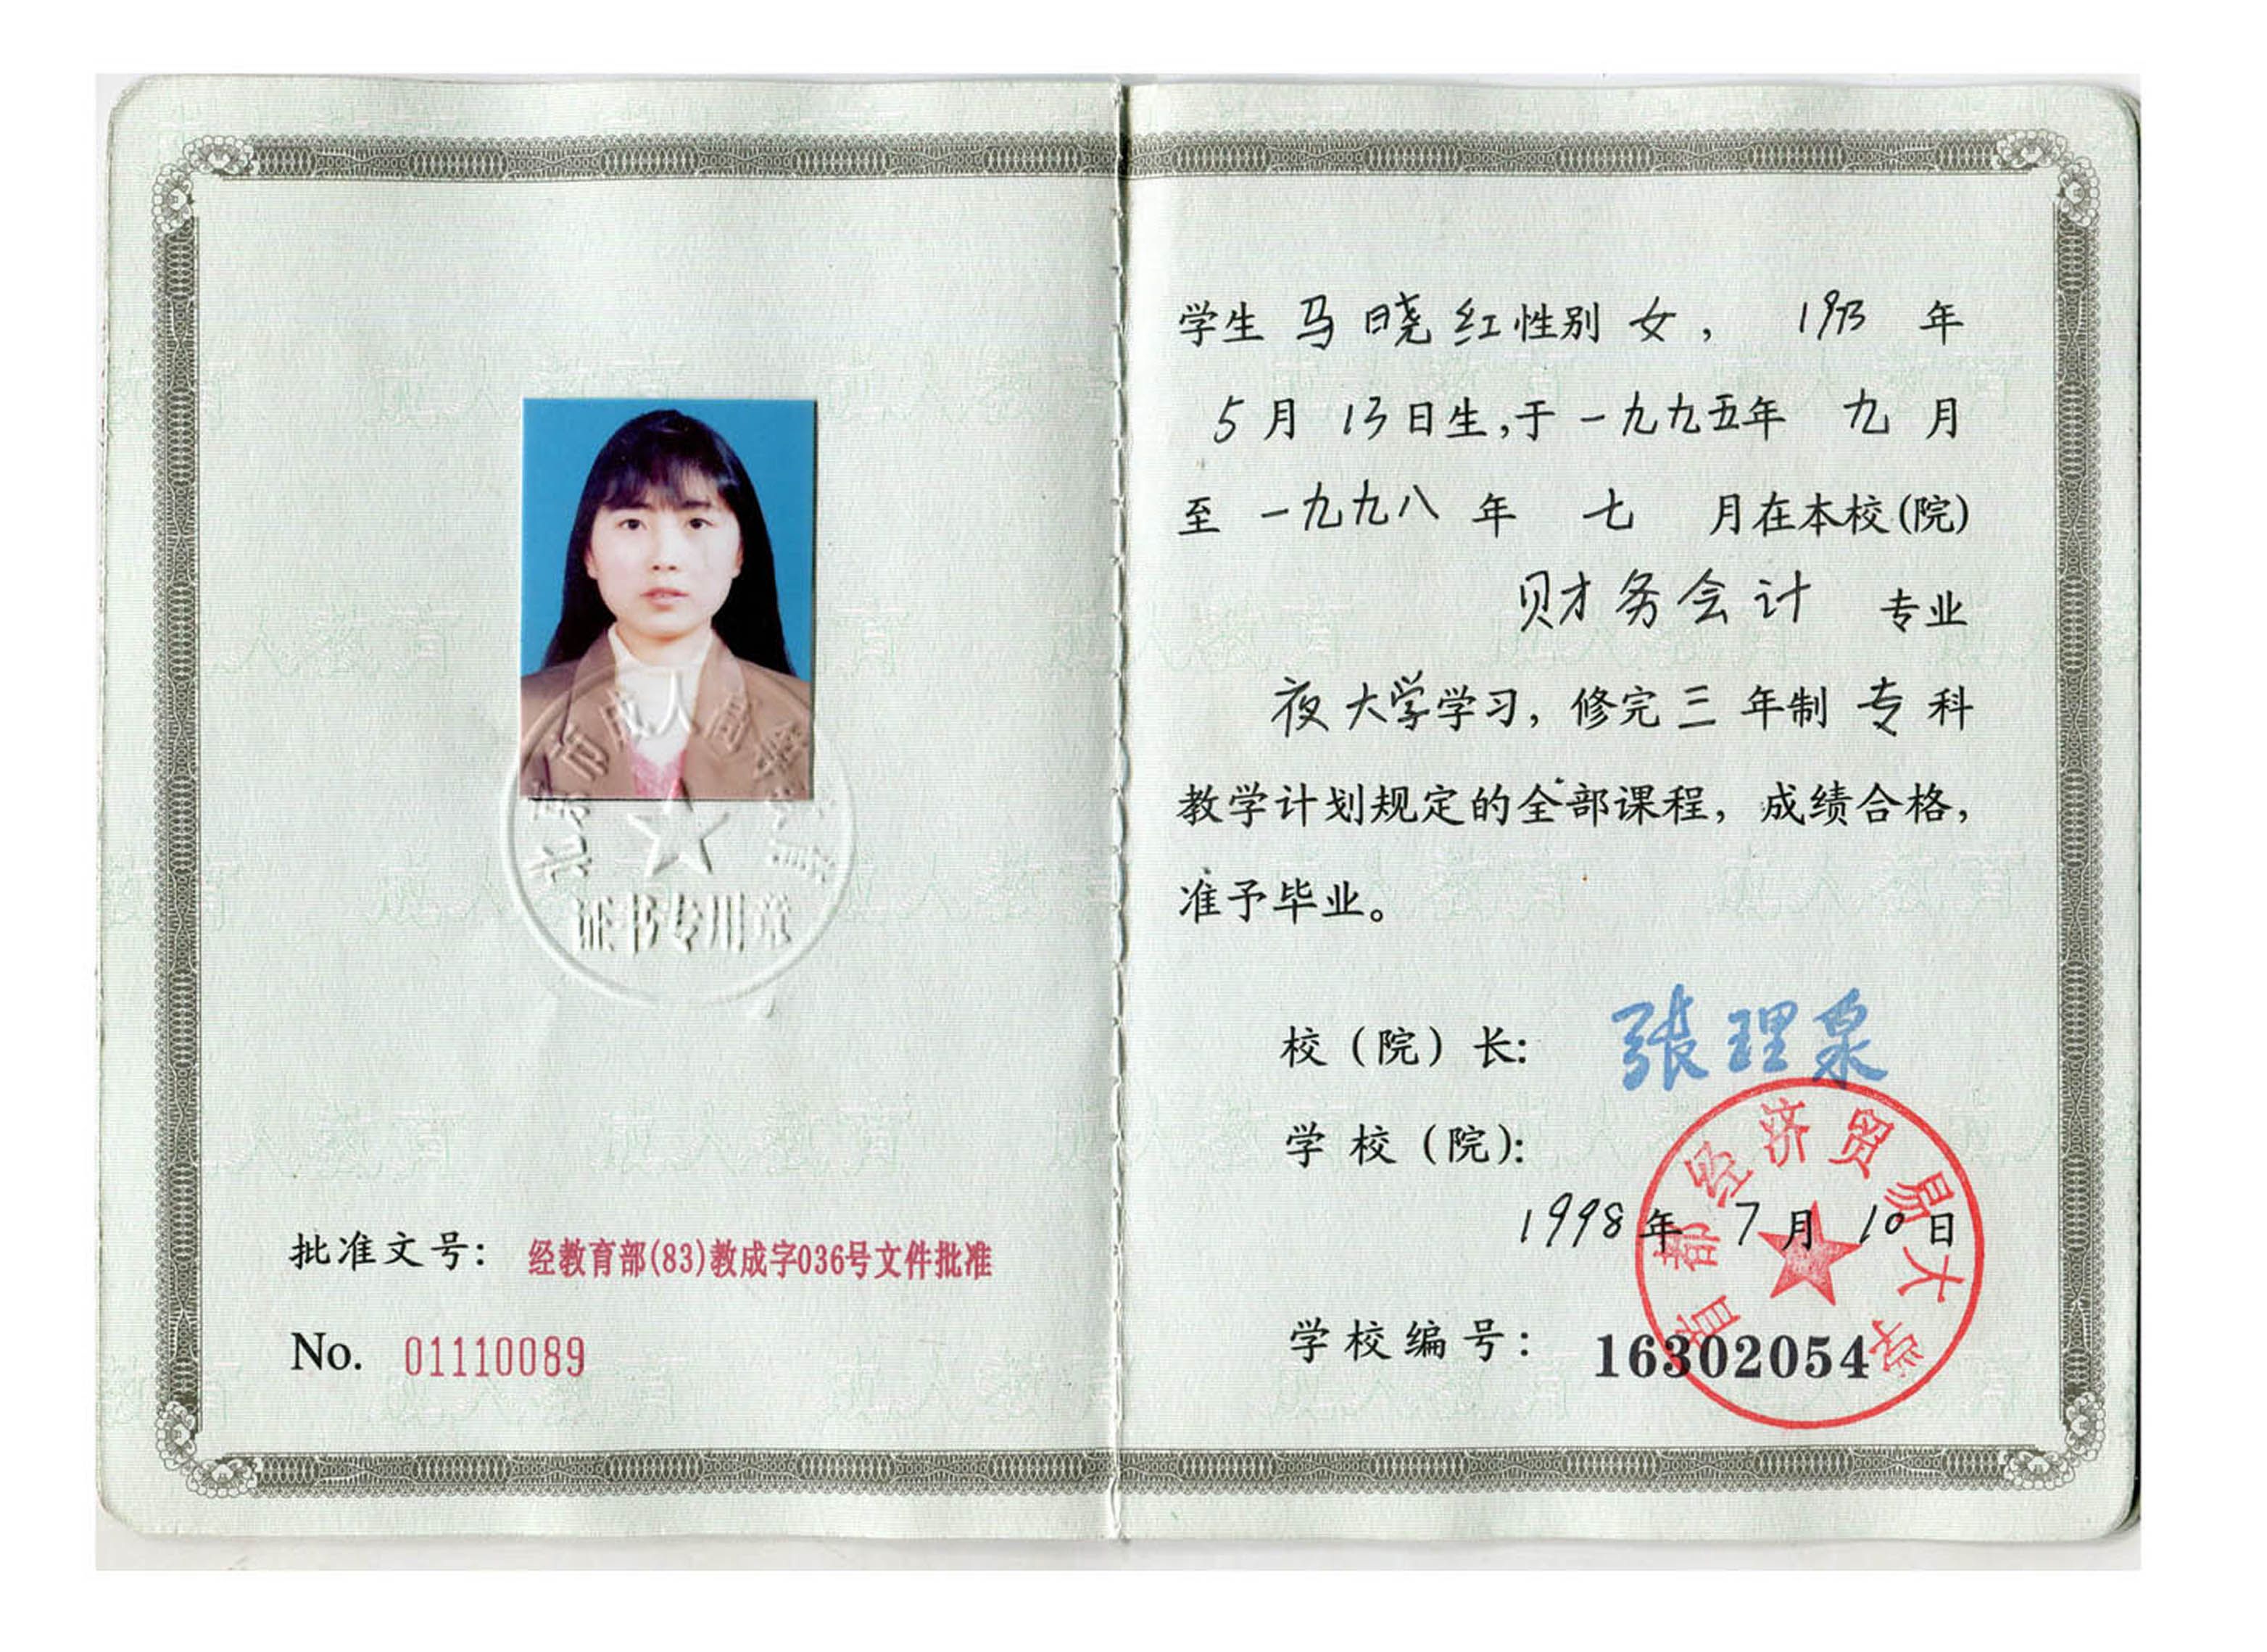 北京市成人高等教育
证书专用章
批准文号： 经教育部(83)教成字036号文件批准
No. 01110089
学生 马晓红 性别 女， 1973 年
5 月 13 日生，于 一九九五年 九 月
至 一九九八 年 七 月在本校(院)
财务会计 专业
夜大学学习，修完 三 年制 专 科
教学计划规定的全部课程，成绩合格，
准予毕业。
校（院）长： 张理泉
学 校（院）：
首都经济贸易大学
1998 年 7 月 10 日
学校编号： 16302054